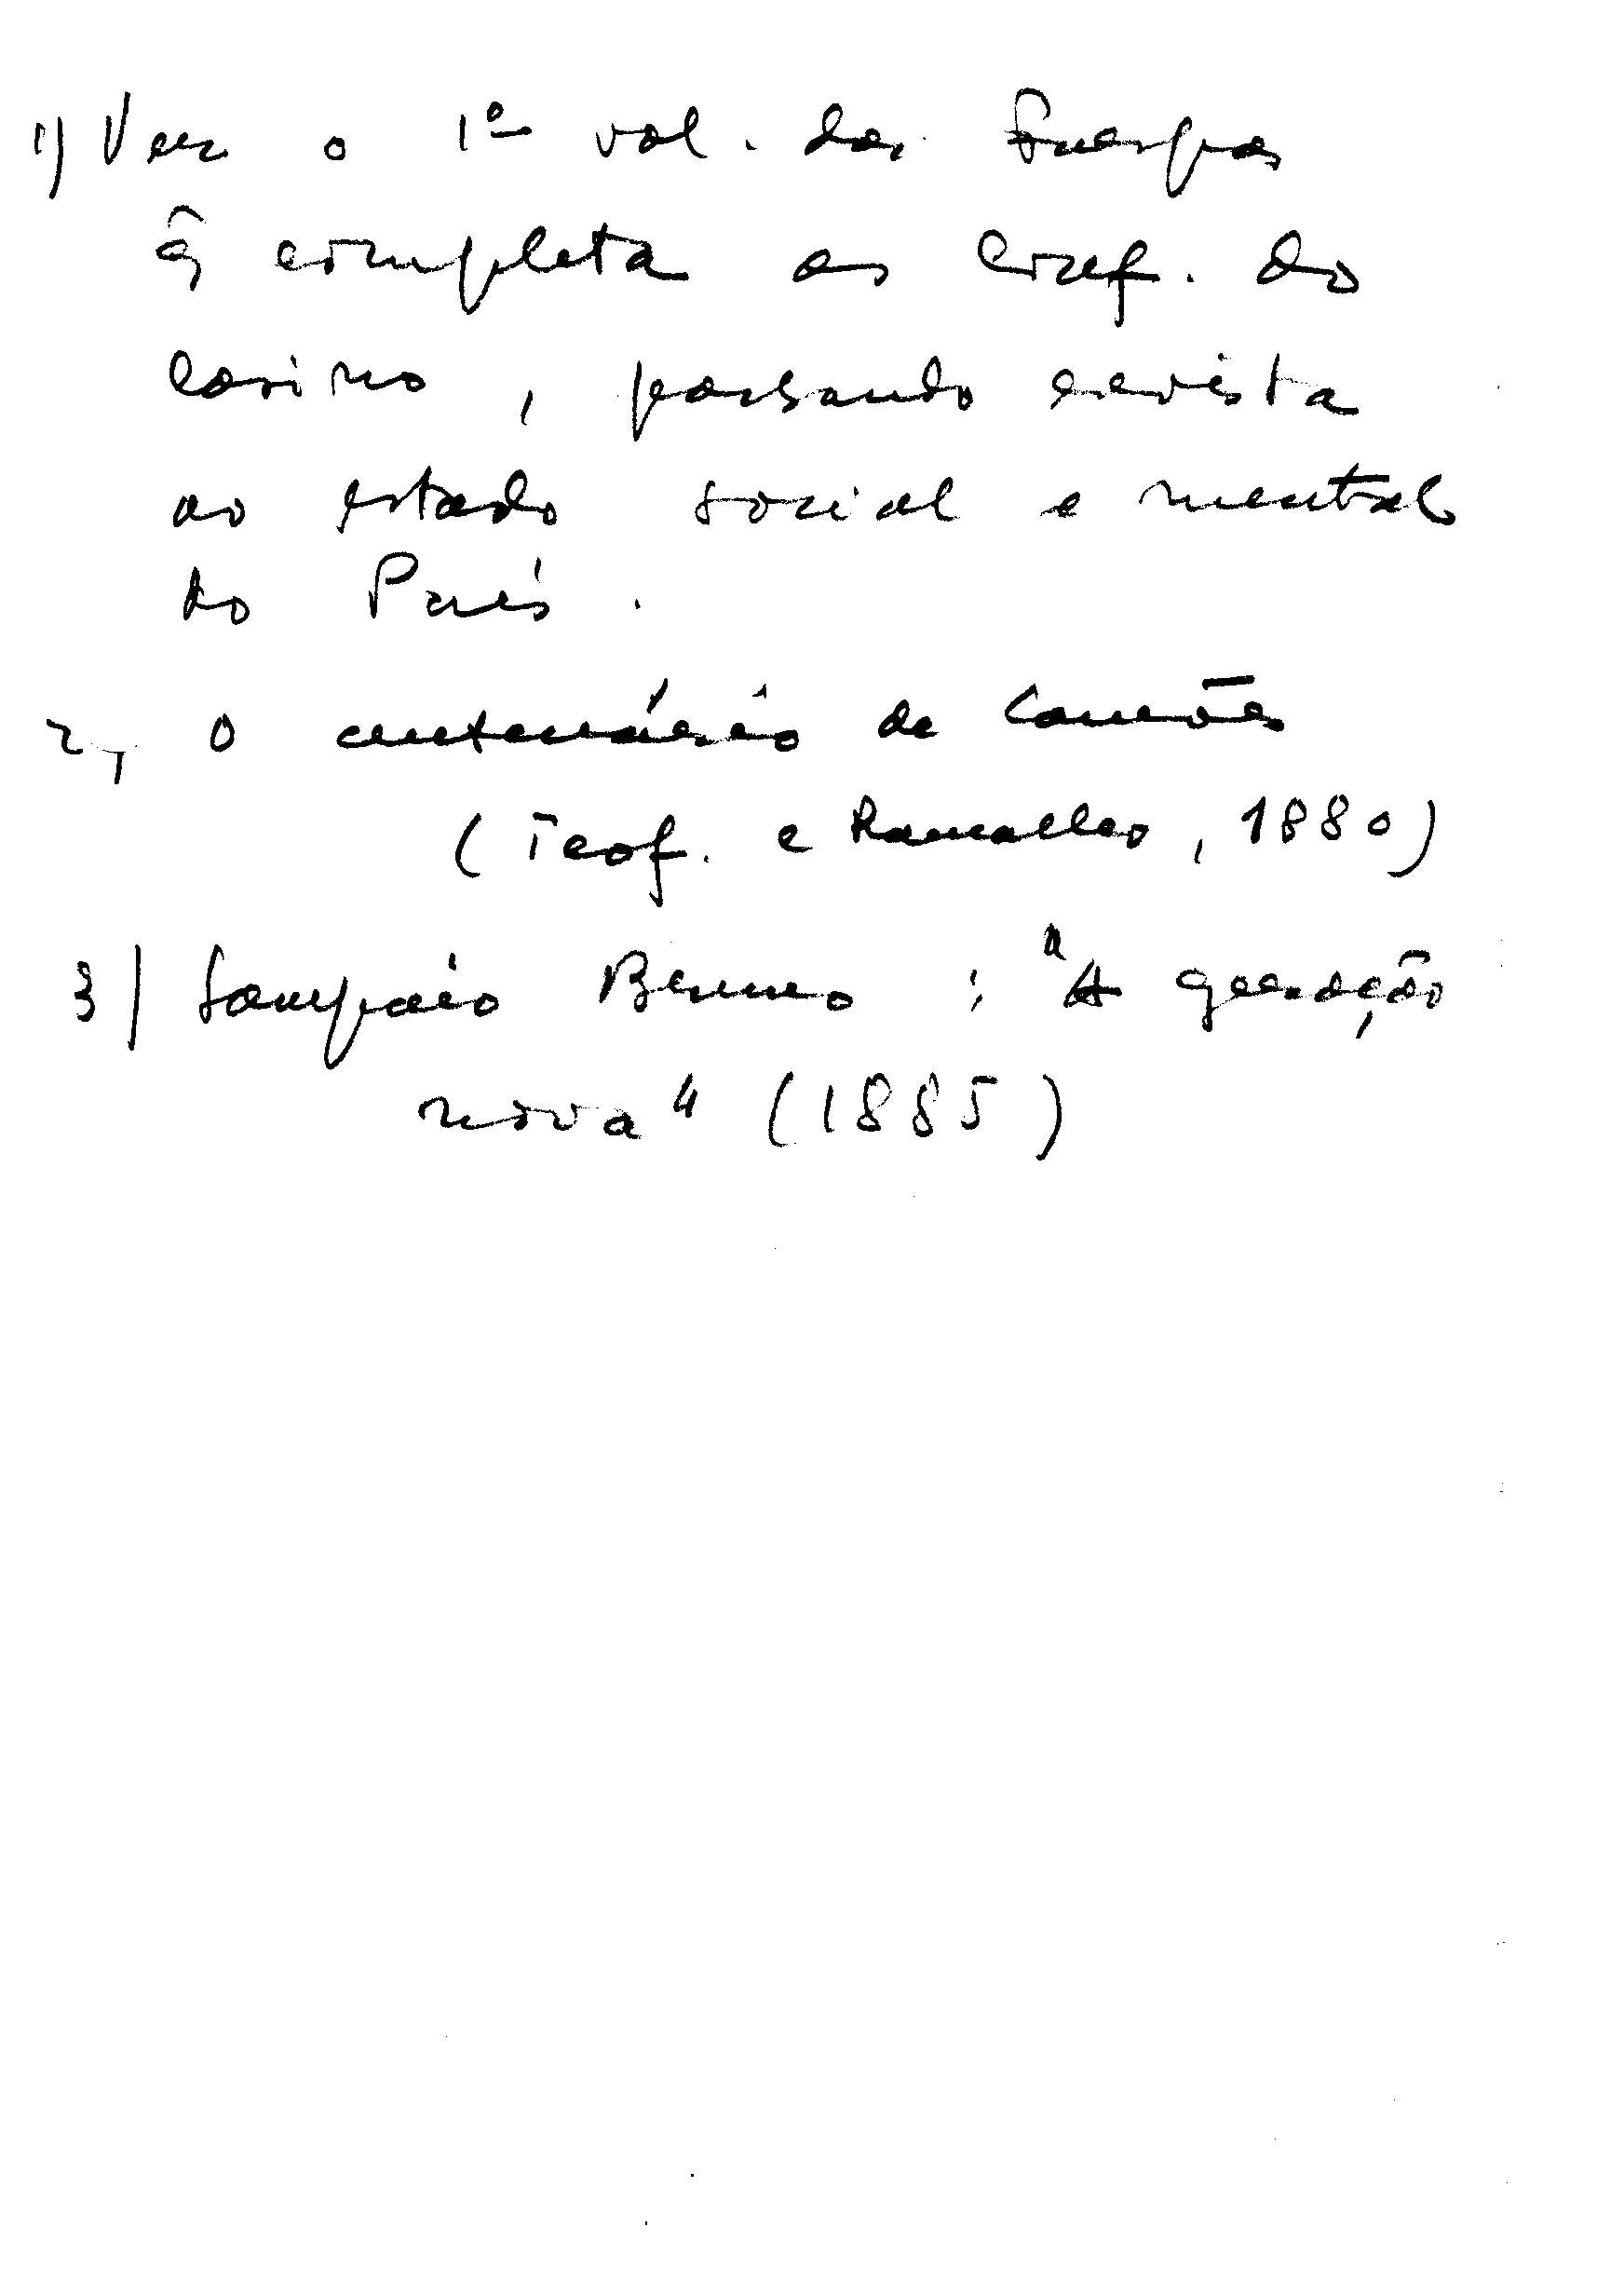 1) Ver o 1º vol. das Farpas
q̂ completa as Conf. do
Casino, passando revista
ao estado social e mental
do País.
2) O centenário de Camões
(Teof. e Ramalho, 1880)
3) Sampaio Bruno: "A geração
nova" (1885)